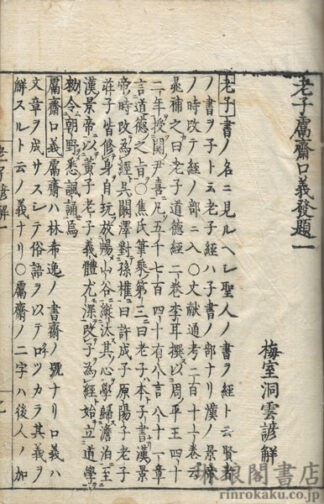 老子鬳齋口義發題一
梅室洞雲諺解
老子書ノ名ニ見ルヘシ聖人ノ書ヲ經ト云賢者
ノ書ヲ子ト云老子經ハ子書ノ部ナリ漢ノ景帝
ノ時改テ經ノ部ニ入〇文献通考二百十一卷云
晁補之曰老子道德經二卷李耳撰以周平王四十
二年授關尹喜凡五千七百四十有八言八十一章
言道德之旨〇焦氏筆乗第三曰老子本子書漢景
帝時改為經呉闞澤對孫權曰許成子原陽子老子
莊子皆修身自玩放暢山谷縱汰其心學歸澹泊至
漢景帝以黄子老子義體尤深改子為經始立道學
勅令朝野悉諷誦焉
鬳齋口義鬳齋ハ林希逸ノ書齋ノ號ナリ口義ハ
文章ヲ成サスシテ俗語ヲ以テロツカラ其義ヲ
解スルト云ノ義ナリ〇鬳齋ノ二字ハ後人ノ加
老子諺解一
琳琅閣書店
rinrokaku.co.jp